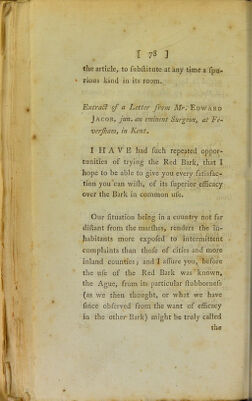 [ 78 ]
the article, to substitute at any time a spu-
rious kind in its room.
Extract of a Letter from Mr. EDWARD
JACOB, jun. an eminent Surgeon, at Fe-
versham, in Kent.
I HAVE had such repeated oppor-
tunities of trying the Red Bark, that I
hope to be able to give you every satisfac-
tion you can wish, of its superior efficacy
over the Bark in common use.
Our situation being in a country not far
distant from the marshes, renders the in-
habitants more exposed to intermittent
complaints than those of cities and more
inland counties; and I assure you, before
the use of the Red Bark was known,
the Ague, from its particular stubbornness
(as we then thought, or what we have
since observed from the want of efficacy
in the other Bark) might be truly called
the